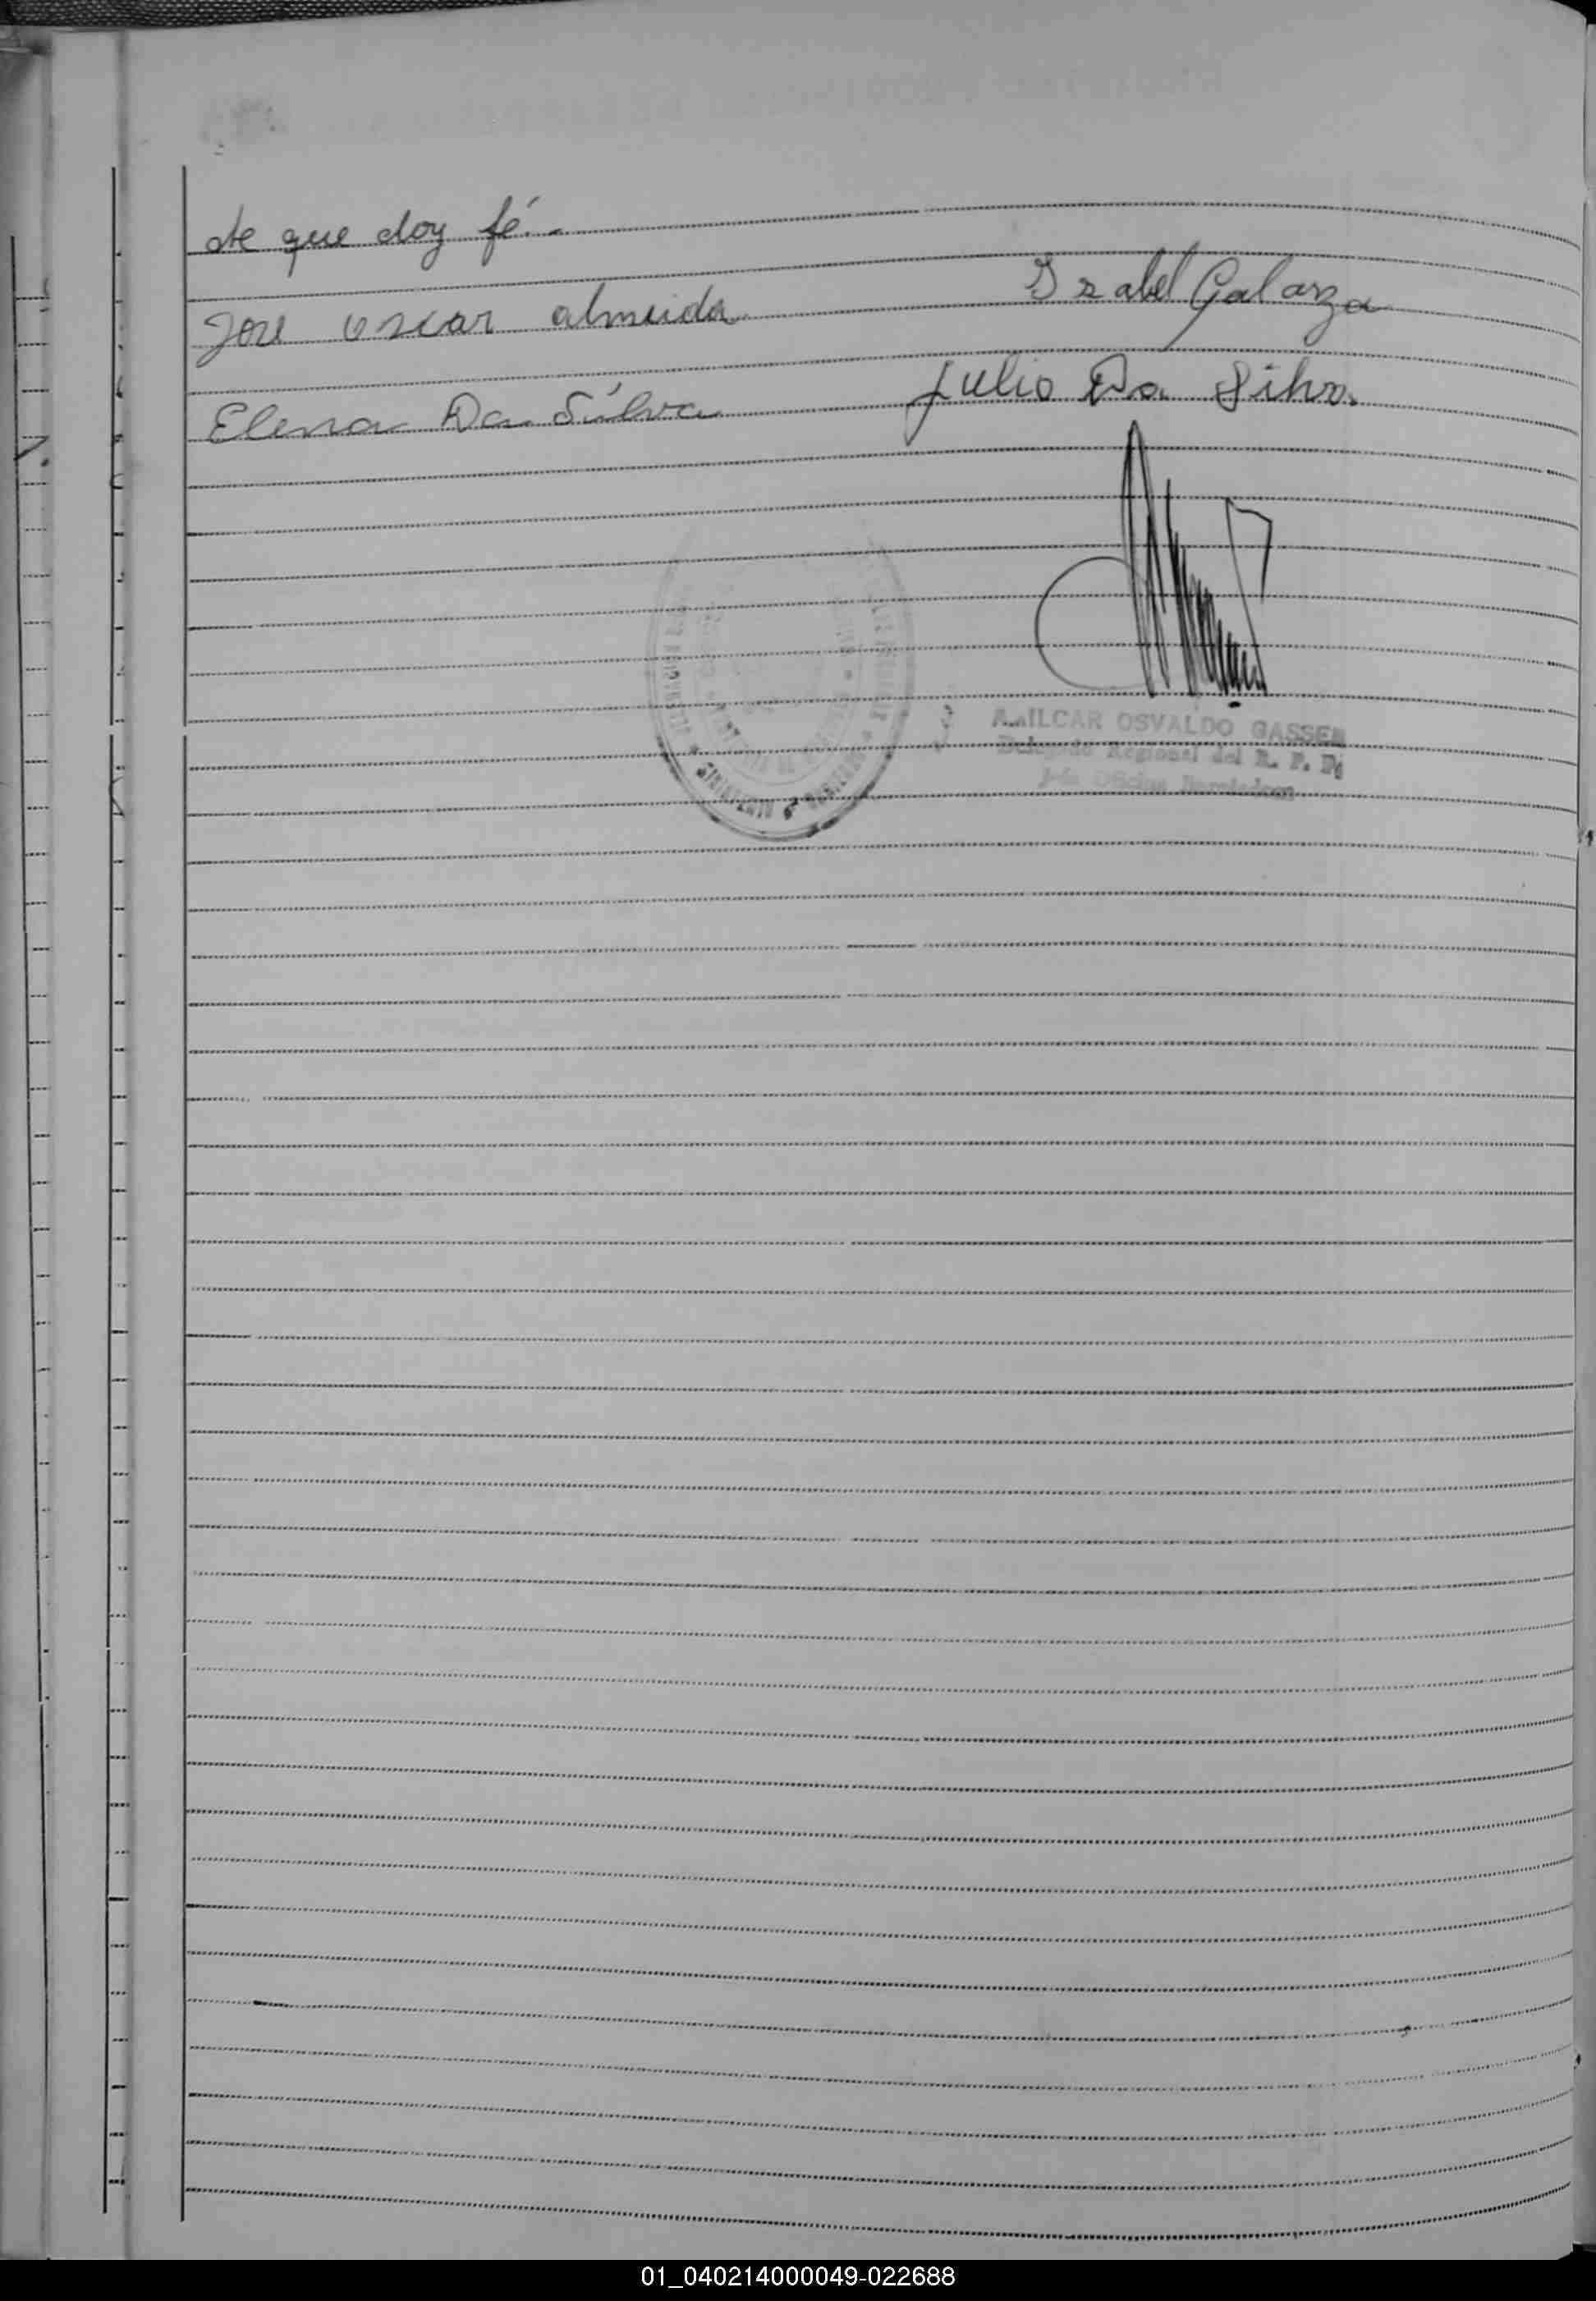 de que doy fé.-
Jose oscar almeida
Izabel Galarza
Elena Da Silva
Julio Da Silva
OSVALDO GASSEN
Delegado Regional del R. P.
01_040214000049-022688